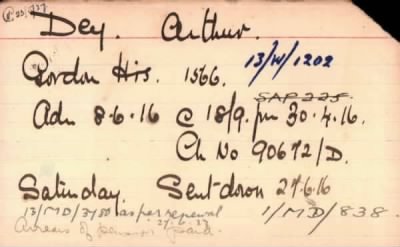 Dey. Arthur.
Gordon His. 1566. 13/H/1202
SAP 225
Adn 8.6.16 c 18/9. pm 30.4.16.
Ch No 90672/D.
Saturday Sent down 27.6.16
13/MD/3780 as per renewal 1/MD/838.
Arrears of pension paid. 27.6.37